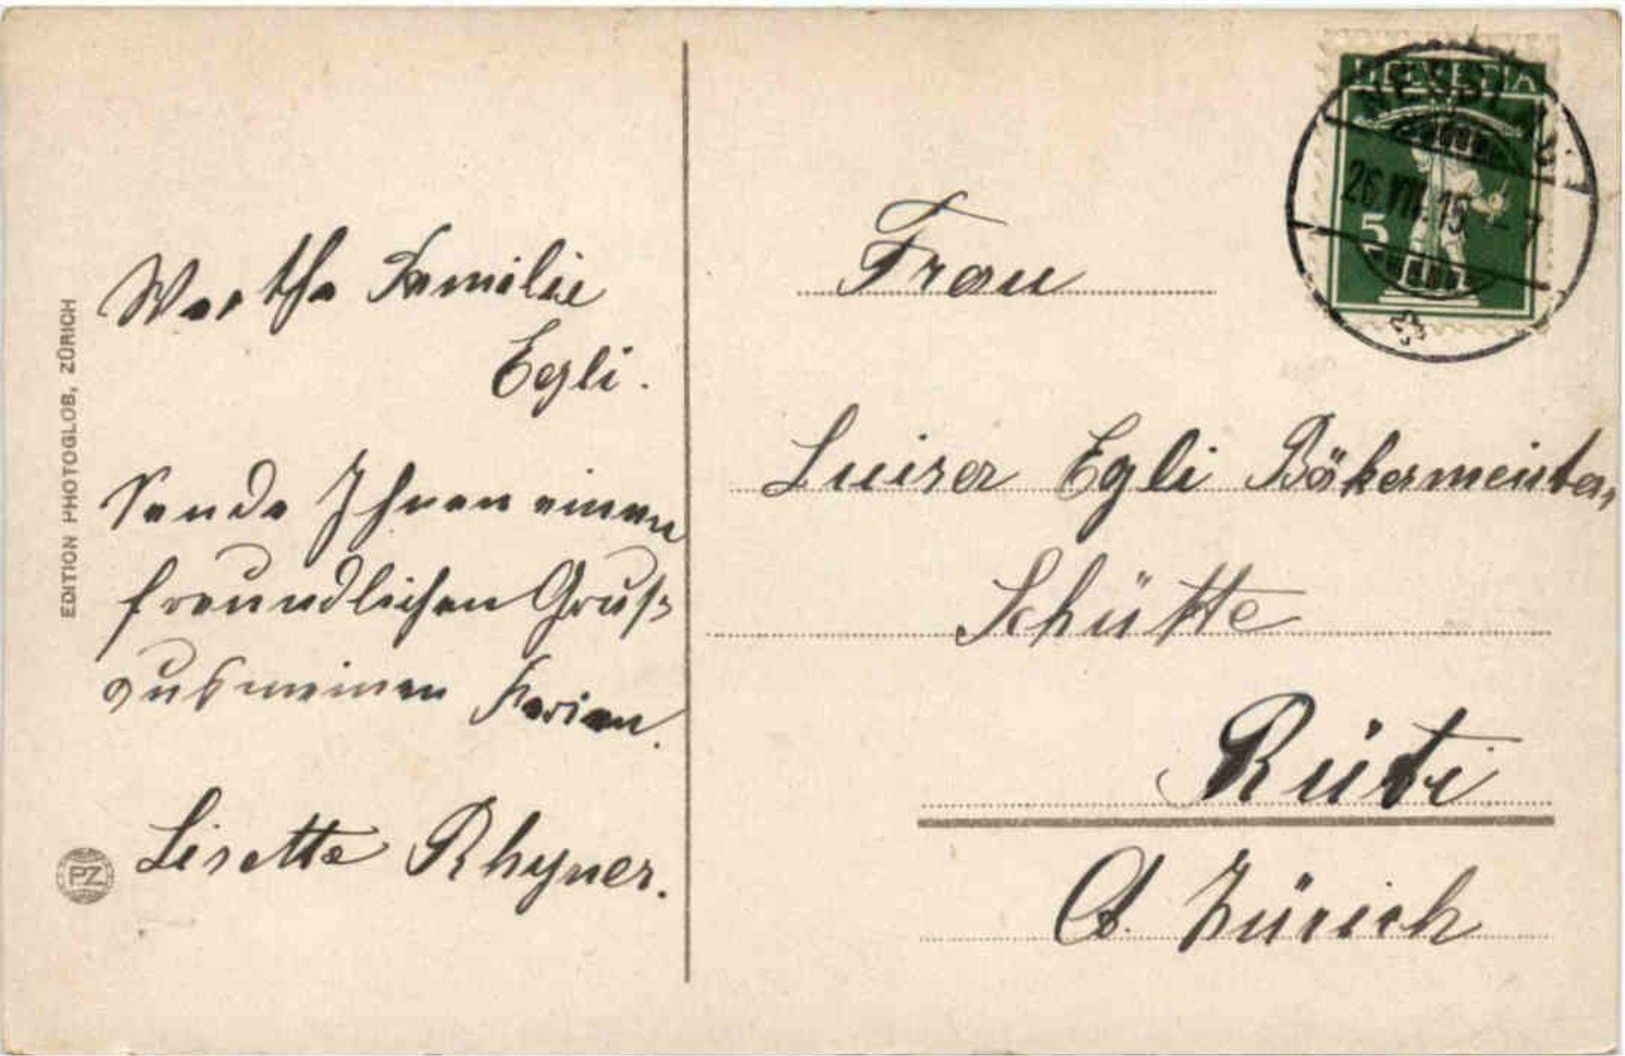 Werthe Familie
Egli.
Sende Ihnen einen
freundlichen Gruß
aus meinen Ferien.
Lisette Rhyner.
EDITION PHOTOGLOB, ZÜRICH
PZ
HELVETIA
5
26.VIII.15 - 7
Frau
Luiser Egli Bäkermeister,
Schütte
Rüti
Ct. Zürich